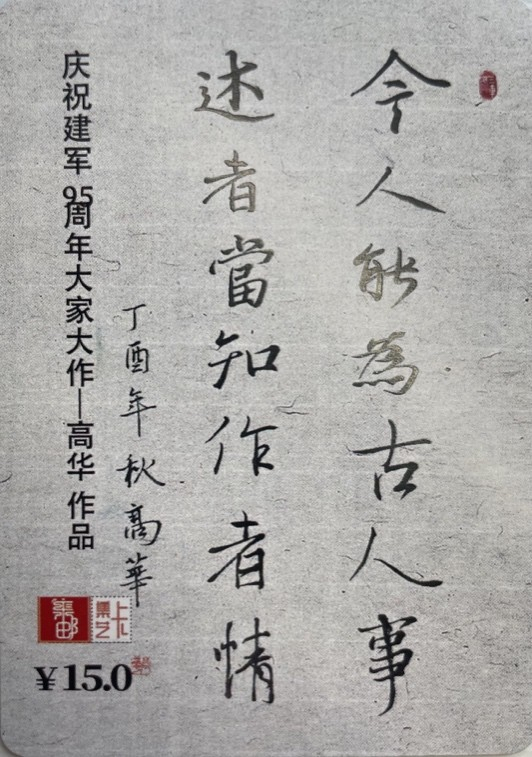 今人能為古人事
述者當知作者情
丁酉年秋高華
庆祝建军95周年大家大作—高华 作品
集邮
集艺卡
¥15.0